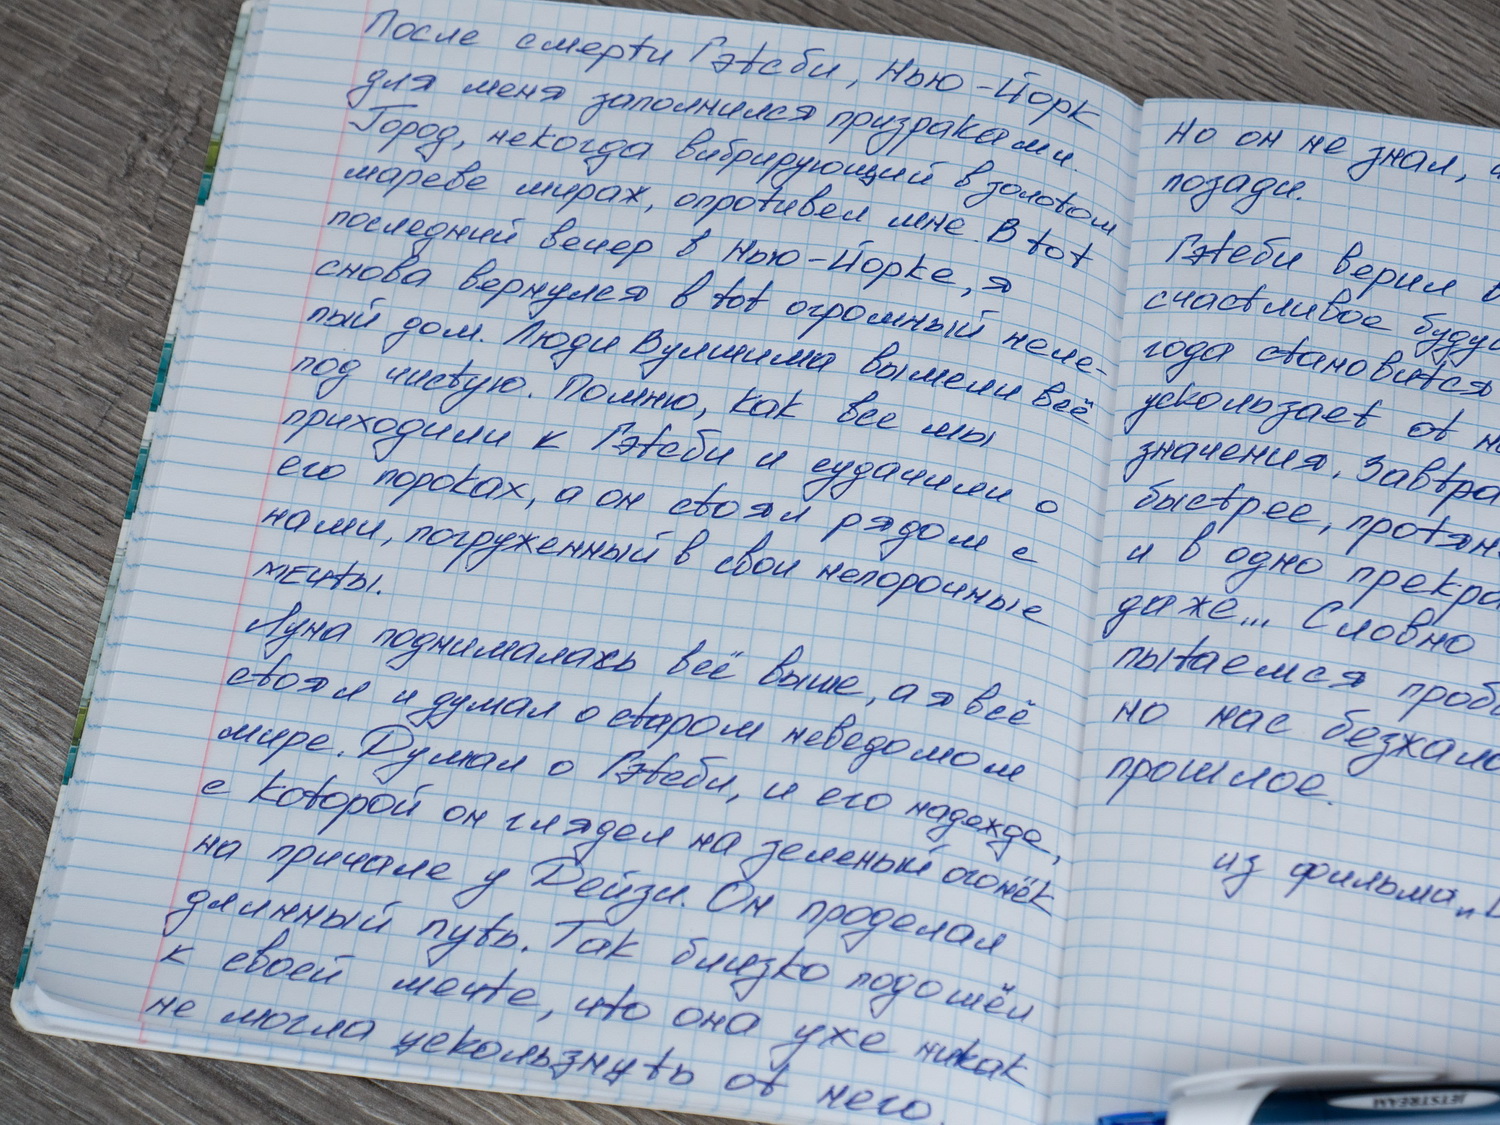 После смерти Гэтсби, Нью-Йорк
для меня заполнился призраками.
Город, некогда вибрирующий в золотом
мареве мирах, опротивел мне. В тот
последний вечер в Нью-Йорке, я
снова вернулся в тот огромный неле-
пый дом. Люди Вулшима вымели всё
под чистую. Помню, как все мы
приходили к Гэтсби и судачили о
его пороках, а он стоял рядом с
нами, погруженный в свои непорочные
мечты.
Луна поднималахь всё выше, а я всё
стоял и думал о старом неведомом
мире. Думал о Гэтсби, и его надежде,
с которой он глядел на зеленый огонёк
на причале у Дейзи. Он проделал
длинный путь. Так близко подошёл
к своей мечте, что она уже никак
не могла ускользнуть от него.
Но он не знал,
позади.
Гэтсби верил в
счастливое
года становится
ускользает от
значения. Завтра
быстрее,
и в одно
даже... Словно
пытаемся
но нас
прошлое.
из фильма „
JETSTREAM